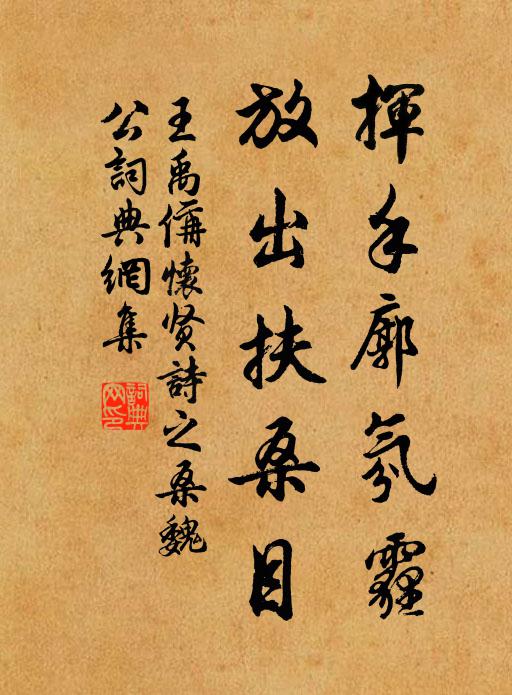 揮手廓氛霾
放出扶桑目
王禹偁懷贤詩之桑魏
公詞典網集
詞典
网印